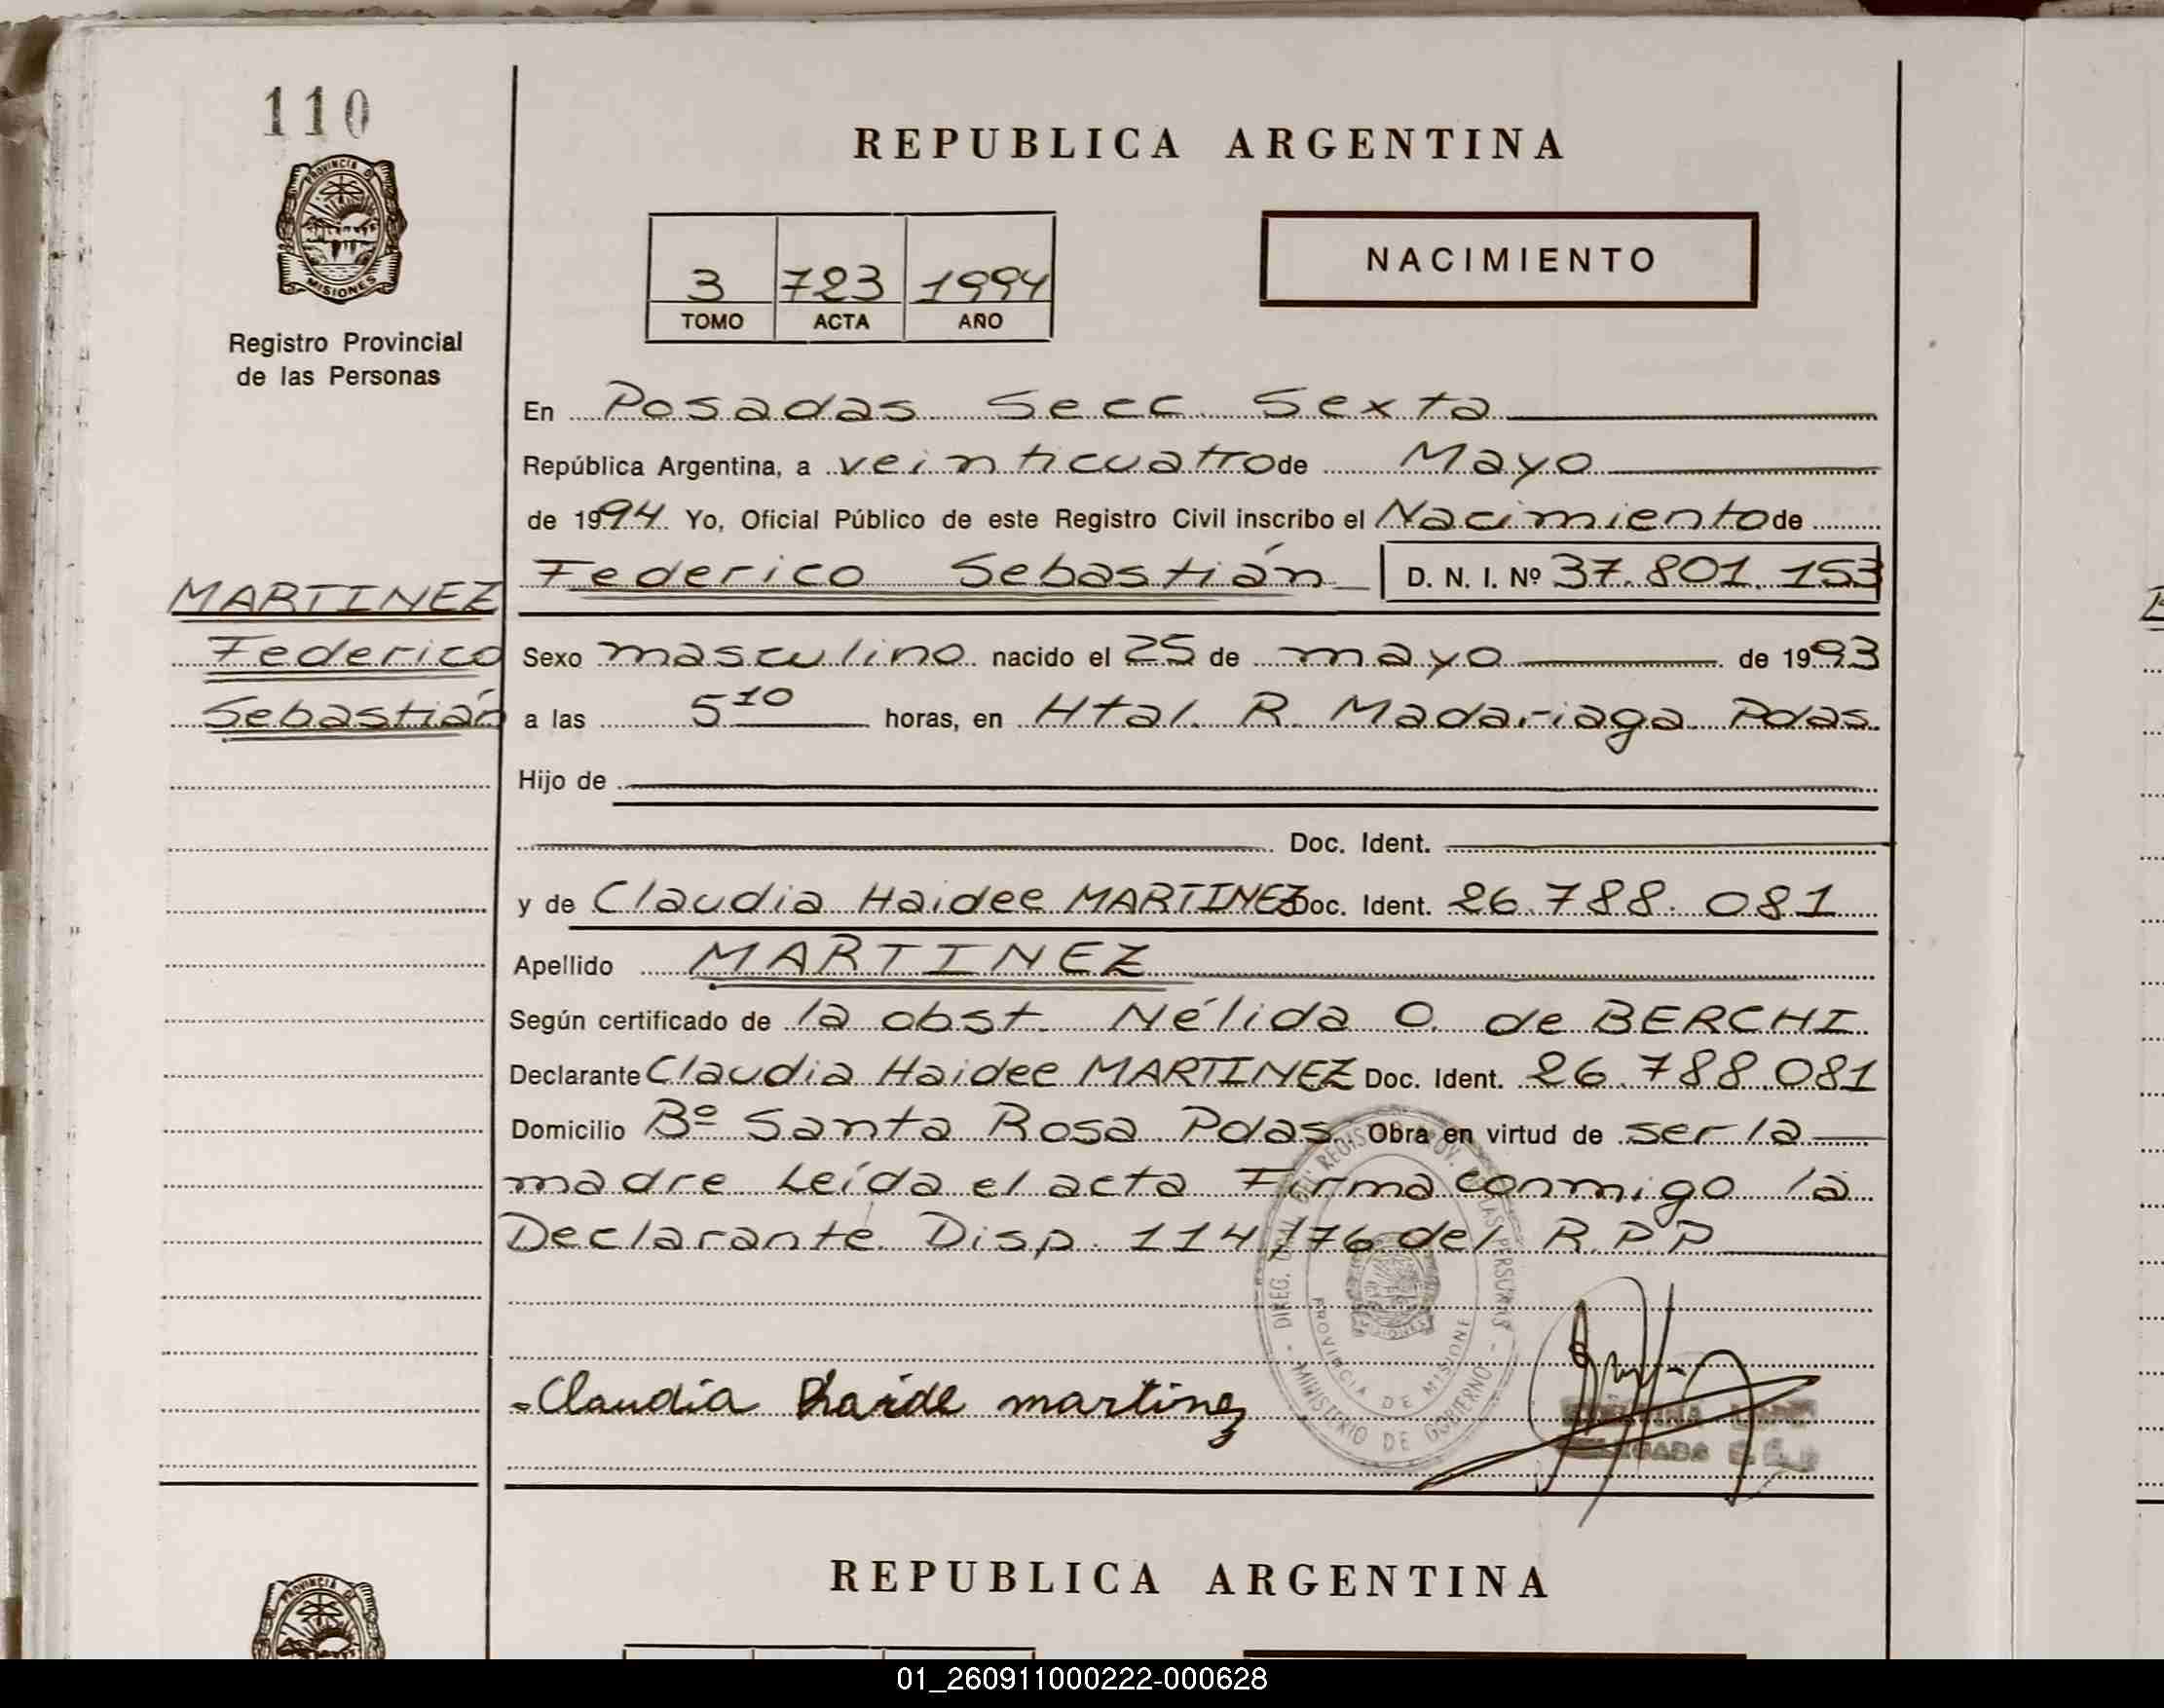 110
PROVINCIA DE
MISIONES
Registro Provincial
de las Personas
REPUBLICA ARGENTINA
3 723 1994
TOMO ACTA AÑO
NACIMIENTO
En Posadas Secc Sexta
República Argentina, a veinticuatro de Mayo
de 1994 Yo, Oficial Público de este Registro Civil inscribo el Nacimiento de
Federico Sebastián D. N. I. Nº 37.801.153
MARTINEZ
Federico
Sebastián
Sexo masculino nacido el 25 de mayo de 1993
a las 5 10 horas, en Htal. R. Madariaga Pdas.
Hijo de
Doc. Ident.
y de Claudia Haidee MARTINEZ Doc. Ident. 26.788.081
Apellido MARTINEZ
Según certificado de la obst. Nélida O. de BERCHI
Declarante Claudia Haidee MARTINEZ Doc. Ident. 26.788.081
Domicilio Bº Santa Rosa Pdas. Obra en virtud de ser la
madre Leída el acta Firma conmigo la
Declarante Disp. 114/76 del R.P.P
PROVINCIA DE MISIONE
MINISTERIO DE GOBIERNO
Claudia Haide martinez
REPUBLICA ARGENTINA
PROVINCIA
01_260911000222-000628